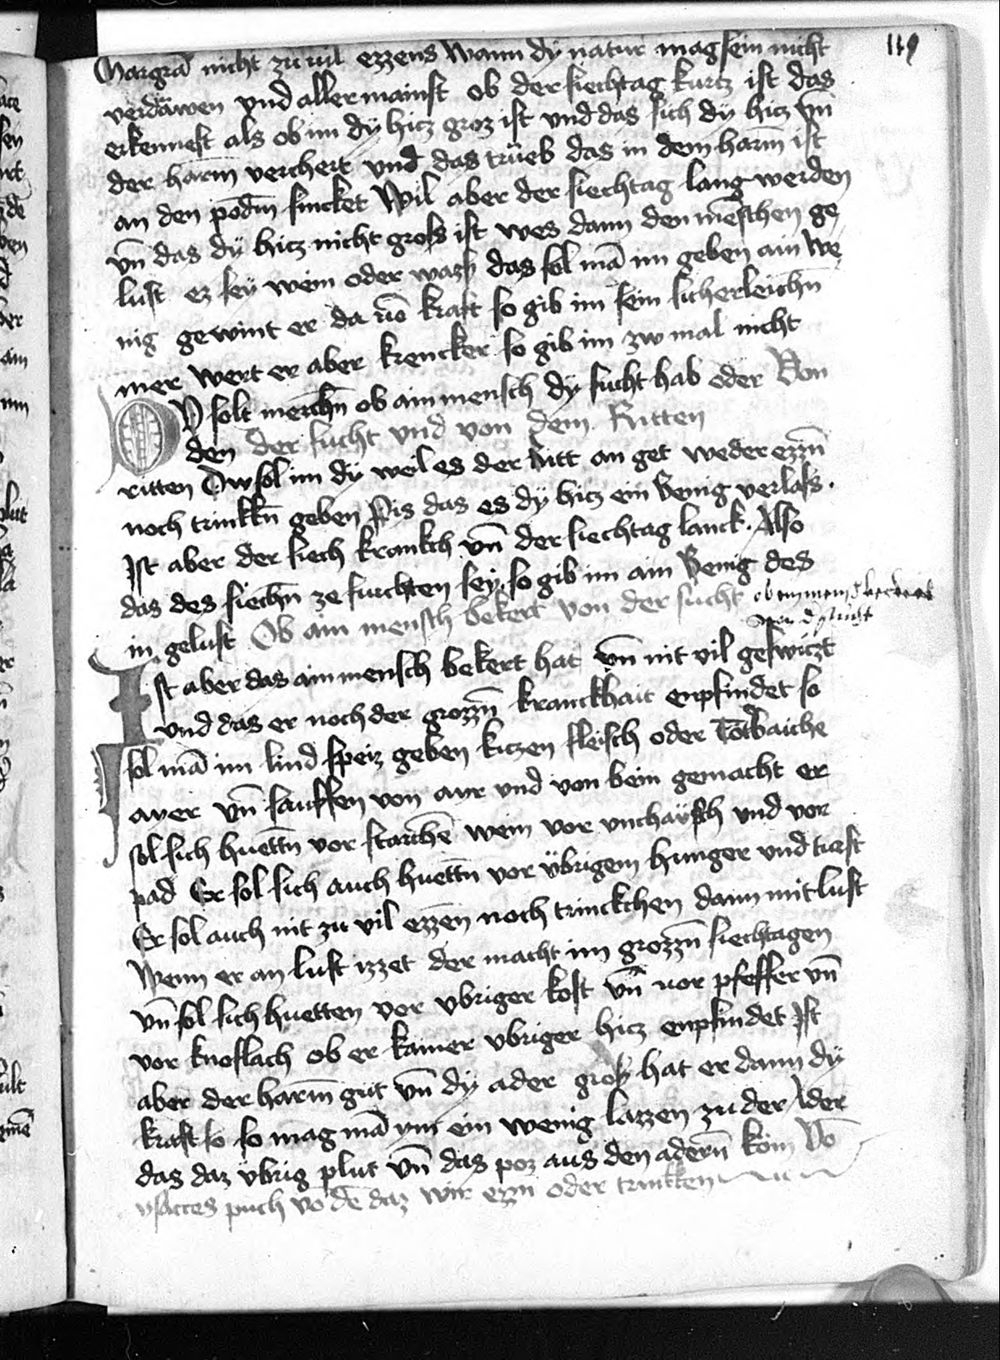 119
Margrā nicht zu vil ezzens Wann dÿ natur mag sein nicht
verdäwen vnd aller mainst ob der siechtag kurtz ist das
erkennest als ob im dÿ hicz groz ist vnd das sich dÿ hicz vn
der harm̄ verchert vnd das trüeb das in dem harm̄ ist
an den podm̄ sincket Wil aber der siechtag lang werden
vn̄ das dÿ hicz nicht gross ist wes dann den mēschen ge
lust ez seÿ wein oder wazz das sol mā im geben ain we
nig gewint er da vō kraft so gib im sein sicherleichn̄
mer wert er aber krencker so gib im zw mal nicht
DV solt merchn̄ ob ain mensch dÿ sucht hab oder Von
den der sucht vnd von dem Ritten
ritten Dw sol im dÿ weil es der ritt an get weder ezzn̄
noch trinkkn̄ geben Pis das es dÿ hicz ein wenig verlass.
Ist aber der siech kranckh vn̄ der siechtag lanck. Also
das des siechn̄ ze furchten seÿ. so gib im ain wenig des
in gelust Ob ain mensch bekert von der sucht ob ain mensch bekert
von d sucht
Ist aber das ain mensch bekert hat vn̄ nit vil geswiczt
vnd das er noch der grozzn̄ kranckhait enpfindet so
sol mā im lind speiz geben kiczen fleisch oder Totbaiche
ayer vn̄ sauffen von ayr vnd von bein gemacht er
sol sich huettn̄ vor starchē wein vor vnchäusch vnd vor
pad Er sol sich auch huettn̄ vor übrigem hunger vnd turst
Er sol auch nit zu vil ezzen noch trinckchen dann mit lust
Wenn er an lust izzet der macht im grozzn̄ siechtagen
vn̄ sol sich huetten vor vbriger kost vn̄ vor pfeffer vn̄
vor knoflach ob er kainer vbriger hicz enpfindet Ist
aber der harm̄ gut vn̄ dÿ ader gross hat er dann dÿ
kraft so so mag mā im ein wenig lazzen zu der Ader
das daz übrig plut vn̄ das poz aus den adern̄ köm Vō
ysactes puch vō dē daz wir ezzn oder trinkken